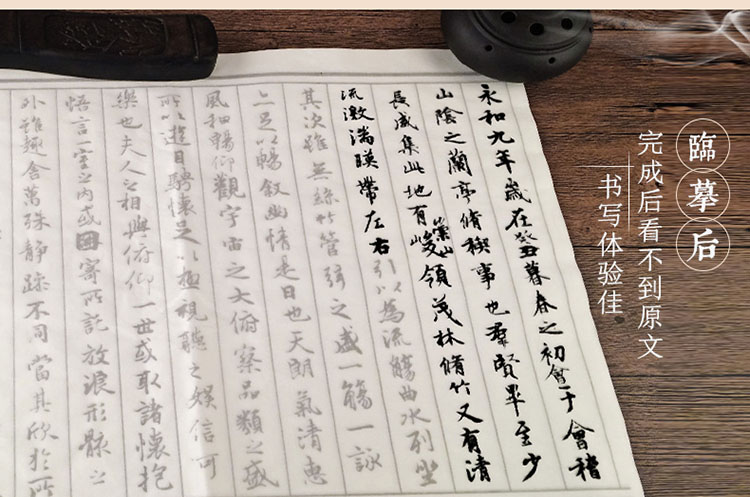 臨摹后
完成后看不到原文
书写体验佳
永和九年歲在癸丑暮春之初會于會稽
山陰之蘭亭脩稧事也羣賢畢至少
長咸集此地有崇山峻領茂林脩竹又有清
流激湍暎帶左右引以為流觴曲水列坐
其次雖無絲竹管弦之盛一觴一詠
亦足以暢敘幽情是日也天朗氣清惠
風和暢仰觀宇宙之大俯察品類之盛
所以遊目騁懷足以極視聽之娛信可
樂也夫人之相與俯仰一世或取諸懷抱
悟言一室之內或因寄所託放浪形骸之
外雖趣舍萬殊靜躁不同當其欣於所